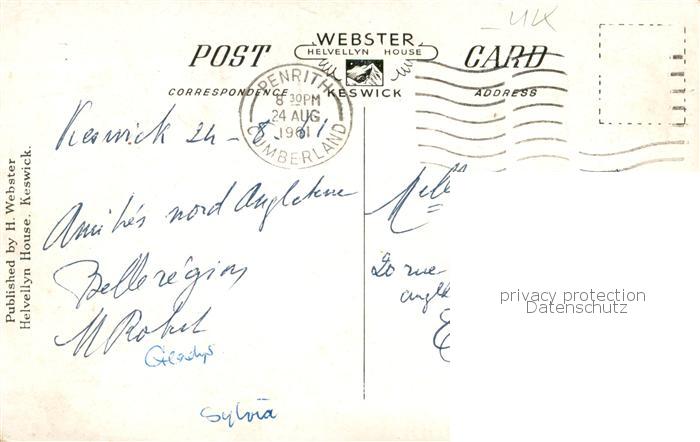 UK
POST WEBSTER CARD
HELVELLYN HOUSE
KESWICK
CORRESPONDENCE ADDRESS
PENRITH
8 30PM
24 AUG
1961
CUMBERLAND
Keswick 24-8-61
Amitiés nord Angleterre
Belle région
Gladys
Sylvia
Melle
20 rue
angle
privacy protection
Datenschutz
Published by H. Webster
Helvellyn House, Keswick.